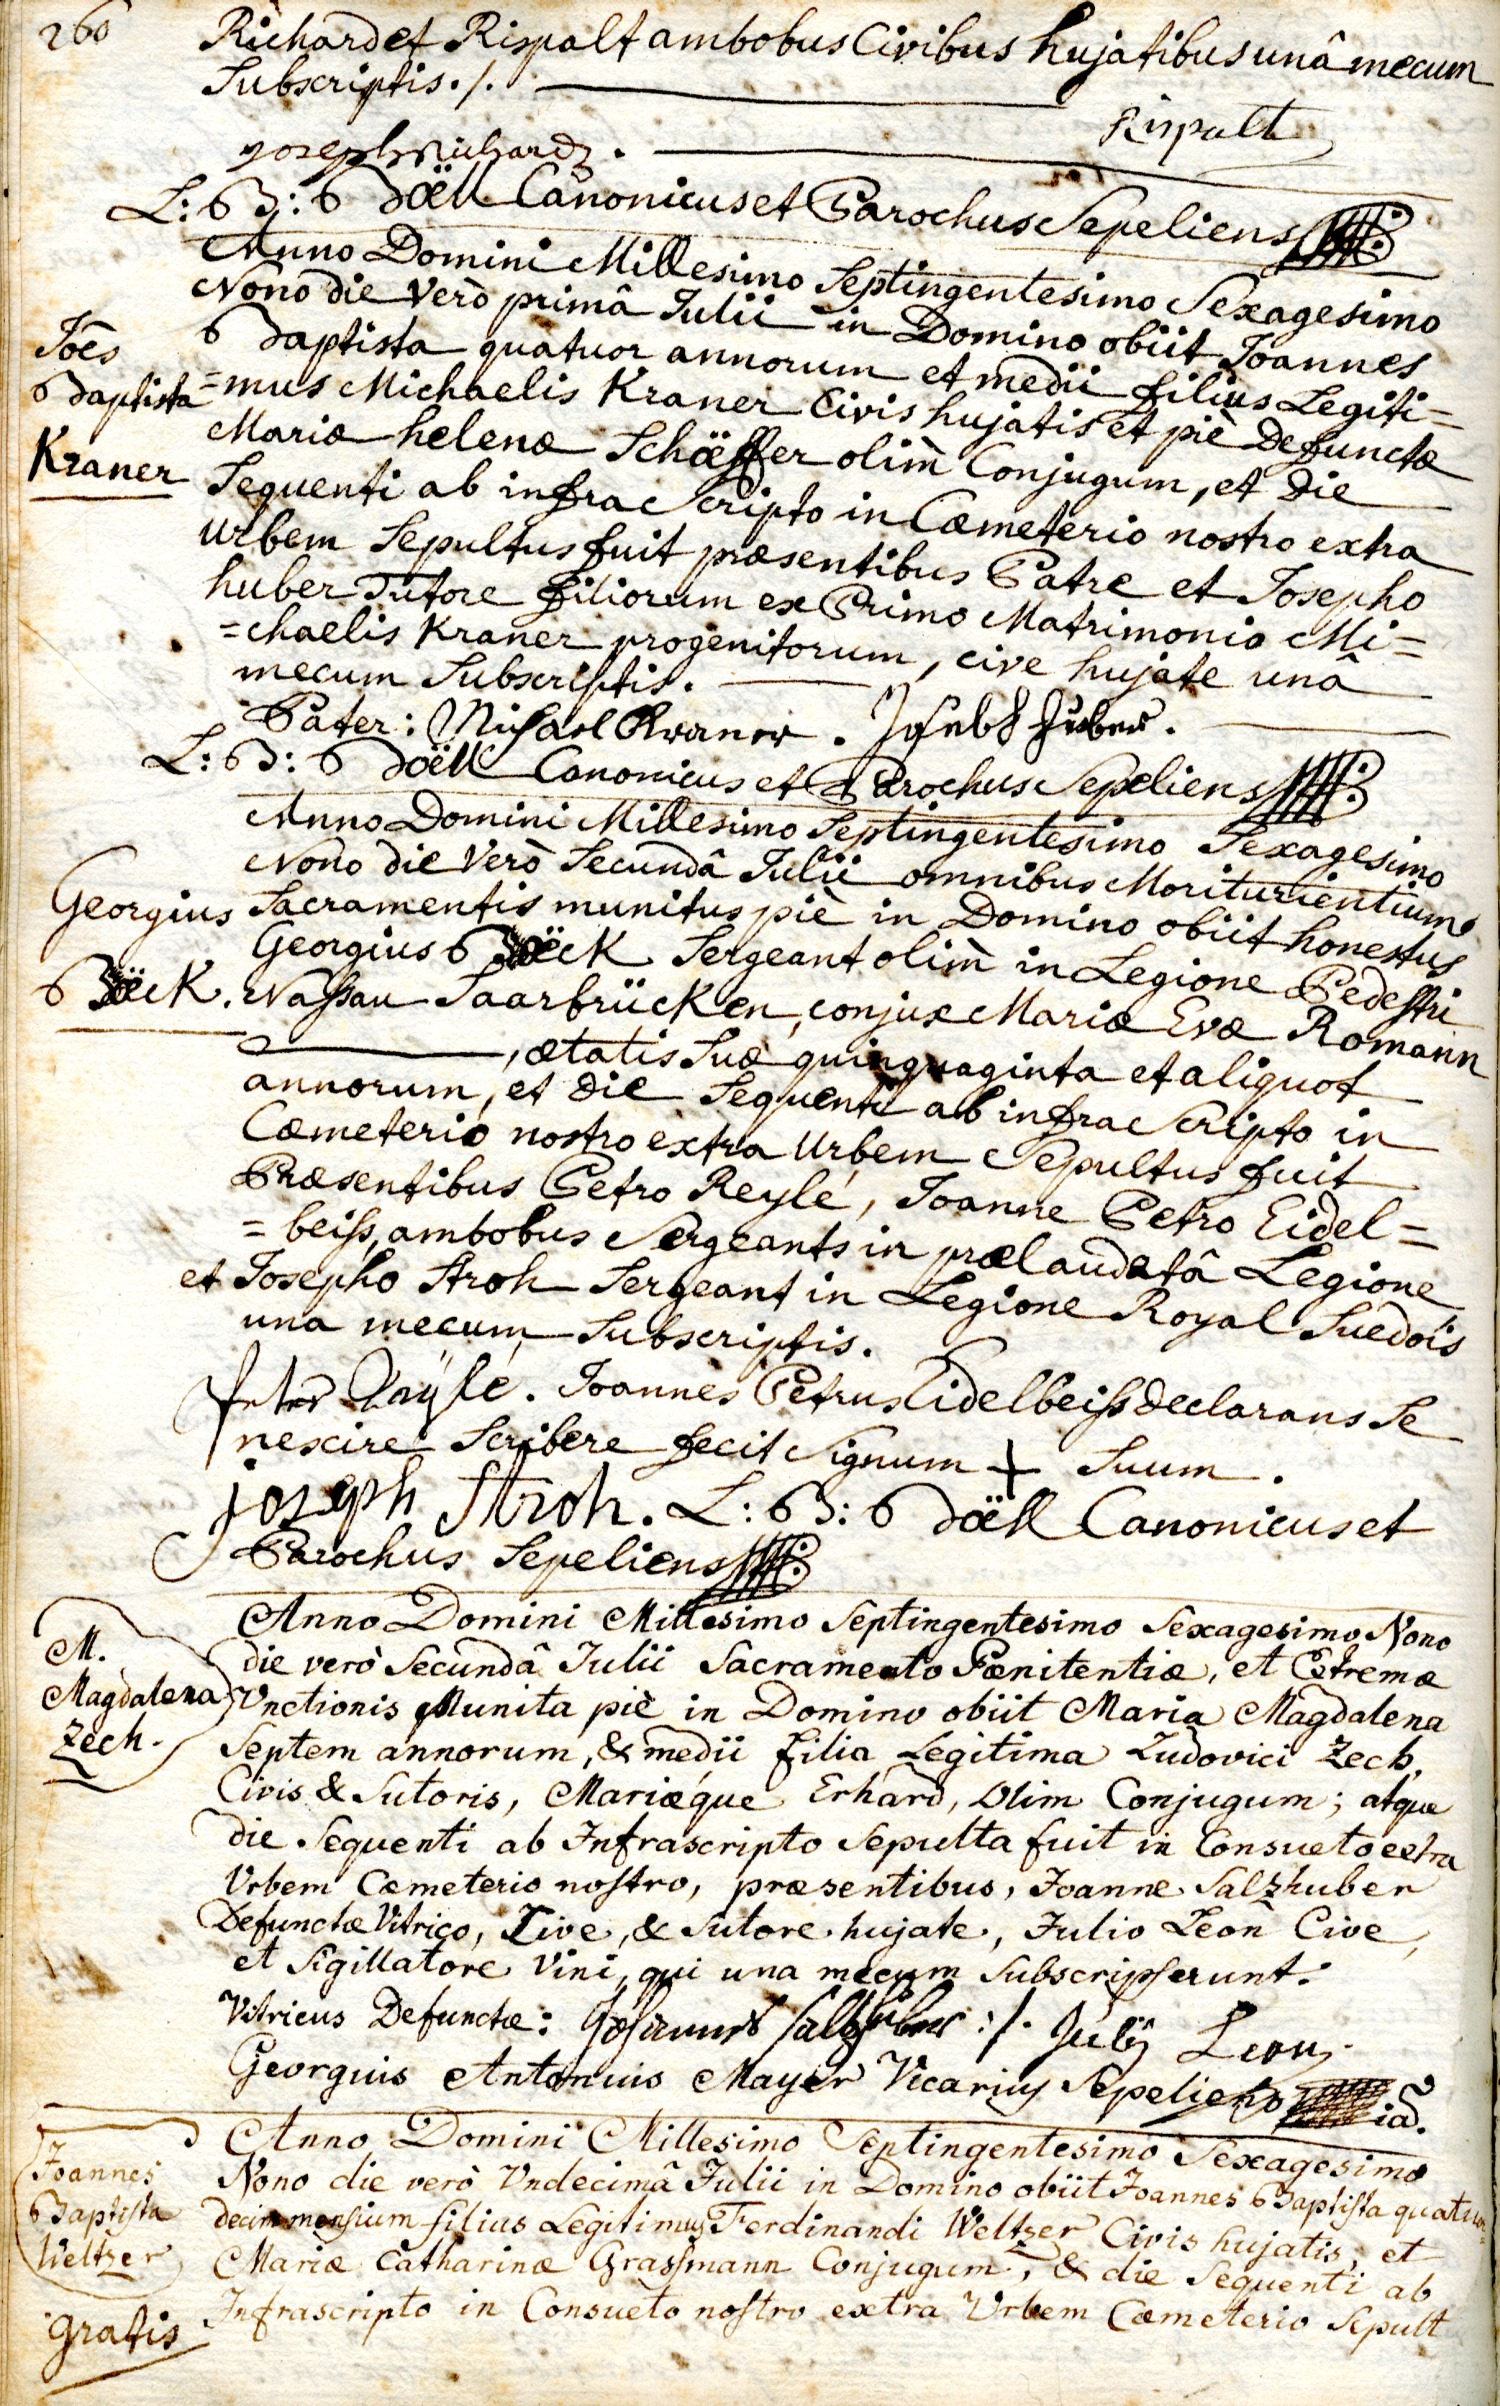 260
Richard et Rispalt ambobus Civibus hujatibus unâ mecum
Subscriptis ./.
Rispalt
joseph Richard.
L: B: Böell Canonicus et Parochus Sepeliens
Anno Domini Millesimo Septingentesimo Sexagesimo
Nono die Verò primâ Julii in Domino obiit Joannes
Baptista quatuor annorum et medii filius Legiti=
=mus Michaelis Kraner Civis hujatis et piè Defunctæ
Mariæ helenæ Schöeffer olim Conjugum, et die
Sequenti ab infra Scripto in Cœmeterio nostro extra
urbem Sepultus fuit præsentibus Patre et Josepho
huber Tutore filiorum ex Primo Matrimonio Mi=
=chaelis Kraner progenitorum, cive hujate unâ
mecum Subscriptis.
Joës
Baptista
Kraner
Pater: Michael Kraner. Joseph Huber.
L: B: Böell Canonicus et Parochus Sepeliens
Anno Domini Millesimo Septingentesimo Sexagesimo
Nono die Verò Secundâ Julii omnibus Moriturientium
Sacramentis munitus piè in Domino obiit honestus
Georgius Böeck Sergeant olim in Legione Pedestri
Nassau Saarbrücken, conjux Mariæ Evæ Romann
, ætatis Suæ quinquaginta et aliquot
annorum, et die Sequenti ab infra Scripto in
Cœmeterio nostro extra Urbem Sepultus fuit
Præsentibus Petro Reylé, Joanne Petro Eidel=
=beiss, ambobus Sergeants in prælaudatâ Legione
et Josepho Stroh Sergeant in Legione Royal Suedois
una mecum Subscriptis.
Georgius
Böeck.
Peter Raÿlé. Joannes Petrus Eidelbeiss declarans Se
nescire Scribere fecit Signum + Suum.
joseph Stroh. L: B: Böell Canonicus et
Parochus Sepeliens
Anno Domini Millesimo Septingentesimo Sexagesimo Nono
die verò Secundâ Julii Sacramento Pœnitentiæ, et Extremæ
Vnctionis Munita piè in Domino obiit Maria Magdalena
Septem annorum, & medii filia Legitima Ludovici Zech,
Civis & Sutoris, Mariæque Erhard, Olim Conjugum; atque
die Sequenti ab Infrascripto Sepulta fuit in Consueto extra
Vrbem Cœmeterio nostro, præsentibus, Joanne Salzhuber
Defunctæ Vitrico, Cive, & Sutore hujate, Julio Leon Cive,
et Sigillatore Vini, qui una mecum Subscripserunt.
M.
Magdalena
Zech.
Vitricus Defunctæ: Johannes Saltzhuber :/. Julÿ Leon
Georgius Antonius Mayer Vicarius Sepeliens
Anno Domini Millesimo Septingentesimo Sexagesimo
Nono die verò Vndecimâ Julii in Domino obiit Joannes Baptista quatuor
decim mensium filius Legitimus Ferdinandi Weltzer Civis hujatis, et
Mariæ Catharinæ Grassmann Conjugum, & die Sequenti ab
Infrascripto in Consueto nostro extra Vrbem Cœmeterio Sepult
Joannes
Baptista
Weltzer
gratis